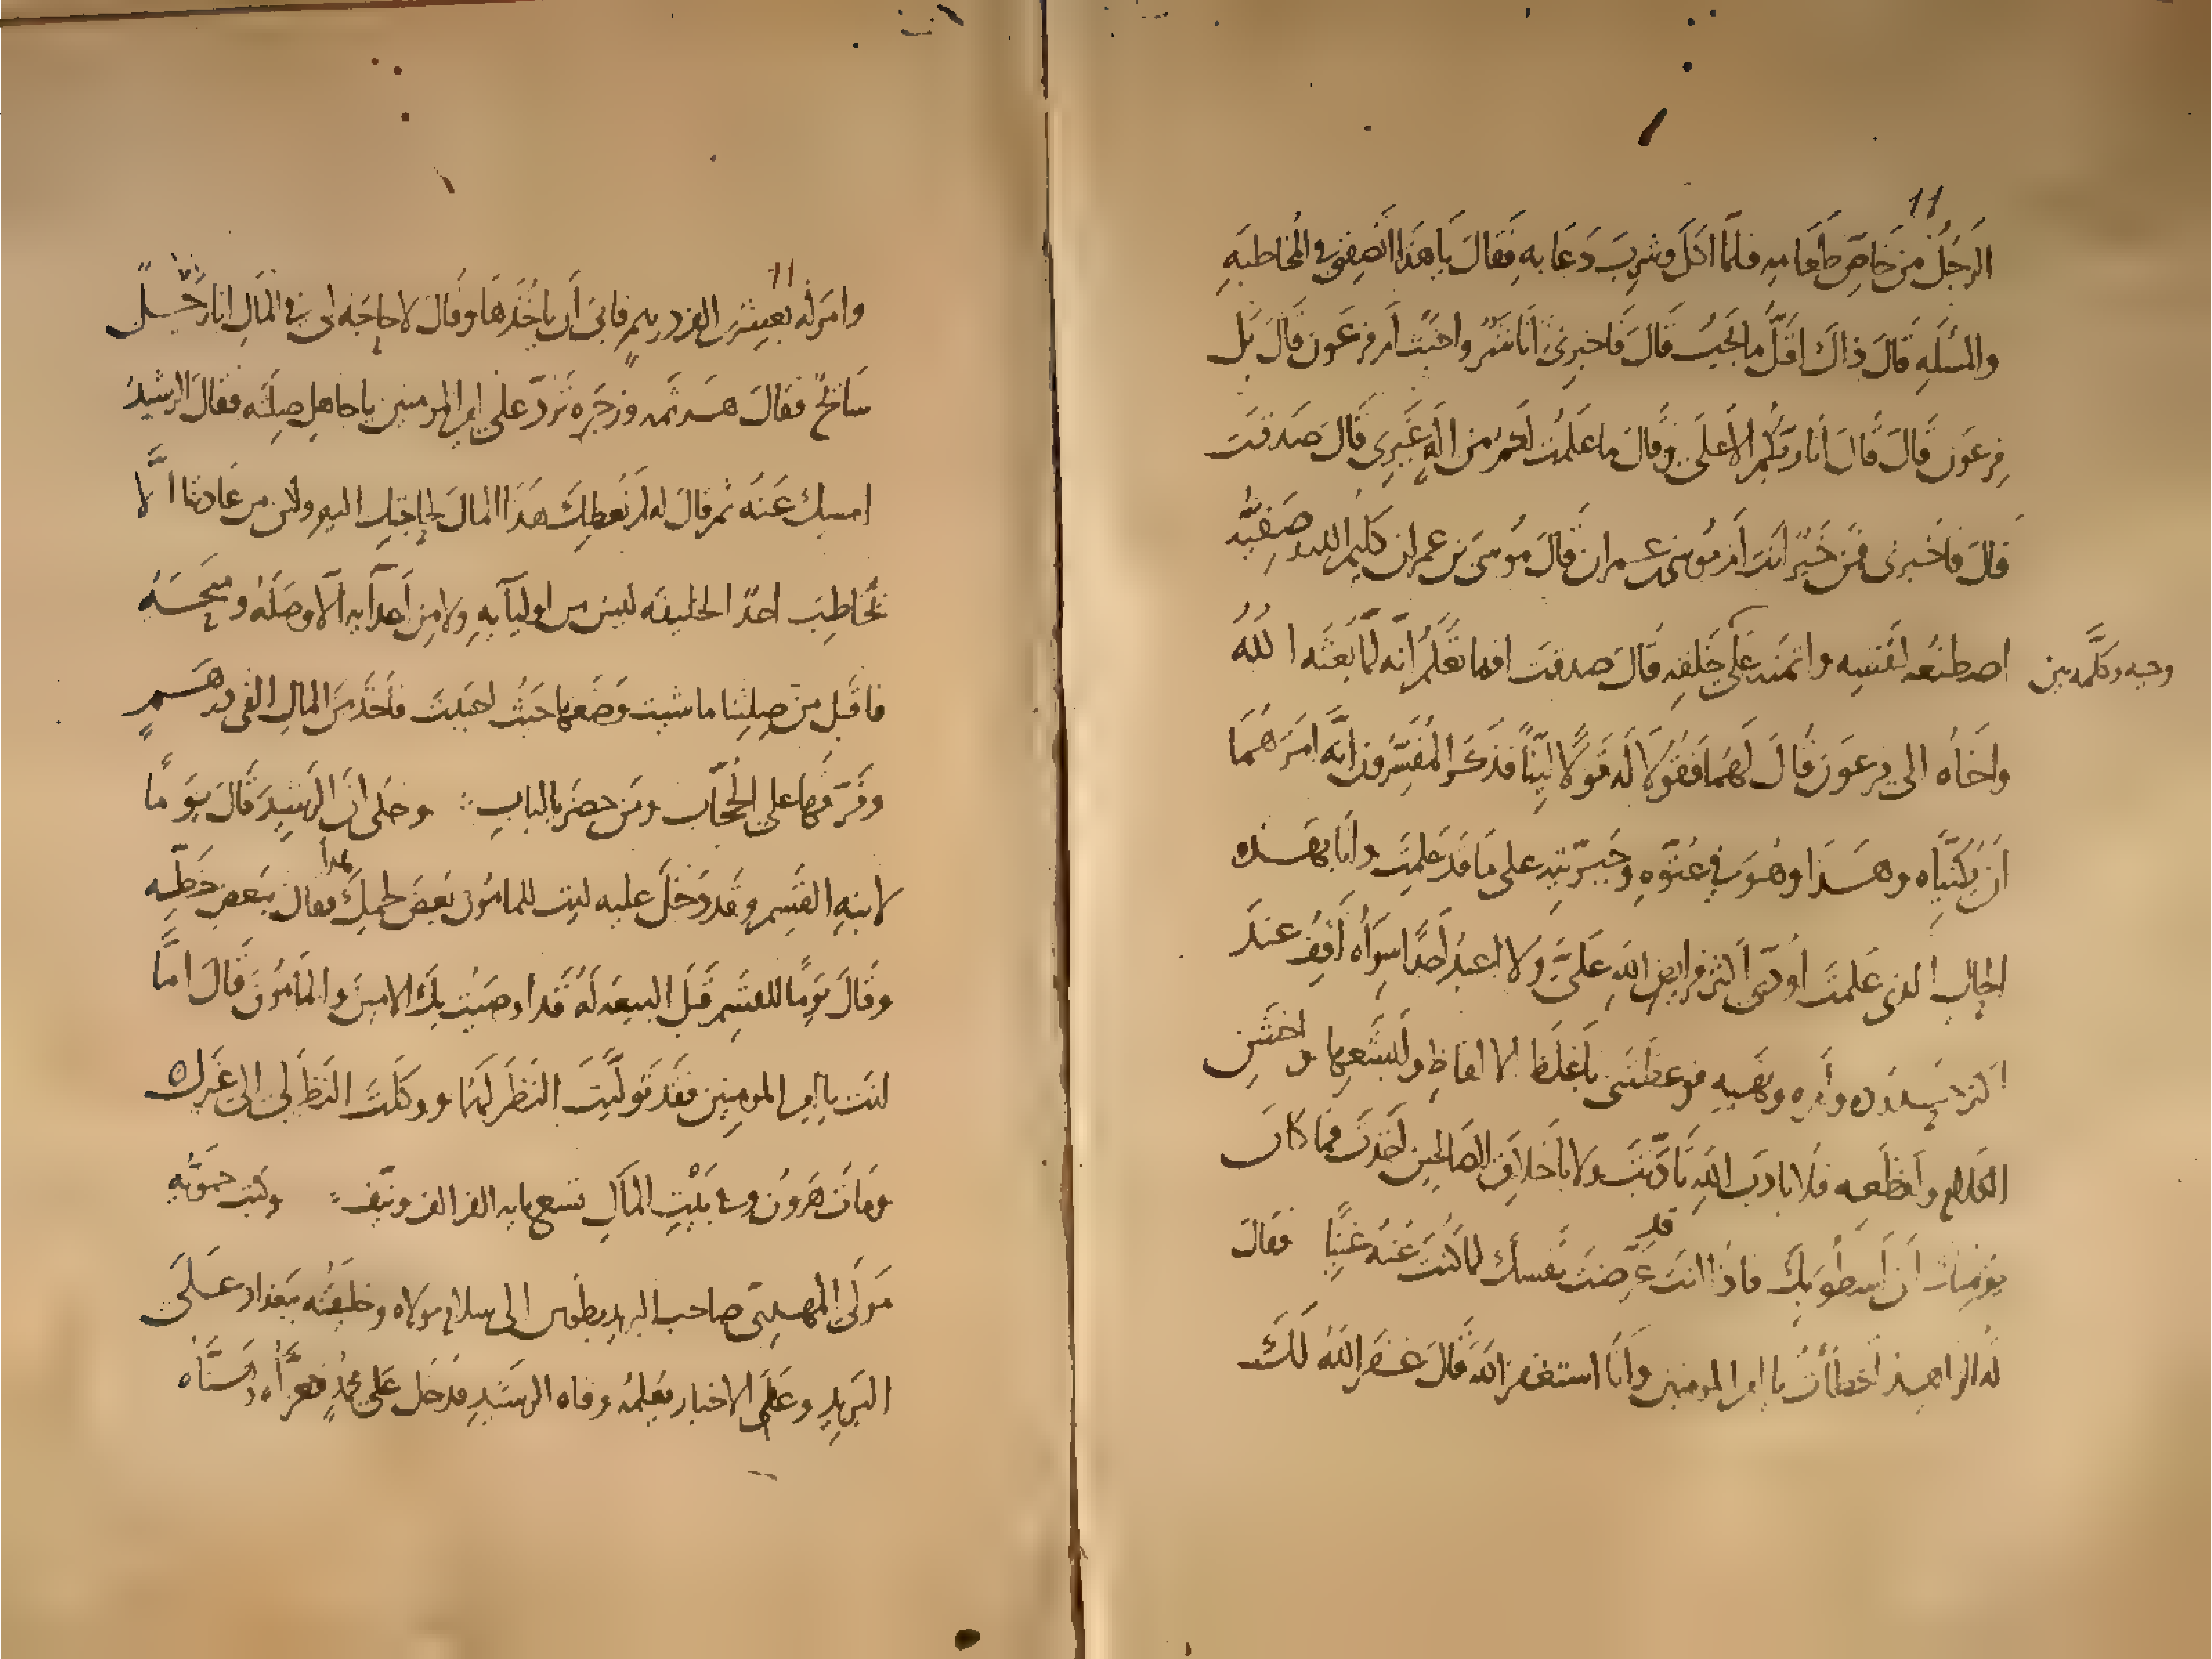 الرجل من خاص طعامه فلما اكل وشرب دعا به فقال يا هذا انصفنى فى المخاطبه
والمسئله قال ذاك اقل ما يجب قال فاخبرنى انا شر واخبث ام فرعون قال بل
فرعون قال قال انا ربكم الاعلى وقال ما علمت لكم من اله غيرى قال صدقت
قال فاخبرنى فمن خير انت ام موسى بن عمران قال موسى بن عمران كليم الله وصفيه
اصطنعه لنفسه وائتمنه على خلقه قال صدقت افما تعلم انه لما بعثه الله
وحيه وكلمه من
واخاه الى فرعون قال لهما فقولا له قولا لينا فذكر المفسرون انه امرهما
ان يكنياه وهذا وهو فى عتوه وجبريته على ما قد علمت وانا بهذه
الحال الذى علمت اودى اكثر فرايض الله على ولا اعبد احدا سواه اقف عند
اكثر حدوده وامره ونهيه فوعظتنى باغلظ الالفاظ وابشعها واخشن
الكلام وافظعه فلا بادب الله تادبت ولا باخلاق الصالحين اخذت فما كان
يومنك ان اسطو بك فاذا انت قد عرضت نفسك لما كنت عنه غنيا فقال
له الزاهد اخطأت يا امير المومنين وانا استغفر الله قال غفر الله لك
وامر له بعشرين الف درهم فابى ان ياخذها وقال لا حاجه لى فى المال انا رجل
سائح فقال هرثمه وزجره ترد على امير المومنين يا جاهل صلته فقال الرشيد
امسك عنه ثم قال له لم نعطك هذا المال لحاجتك اليه ولكن من عادتنا الا
يخاطب احد الخليفه ليس من اوليآيه ولا من اعدآيه الا وصله ومنحه
فاقبل من صلتنا ما شيت وضعها حيث احببت فاخذ من المال الفى درهم
وفرقها على الحجاب ومن حضر بالباب : وحكى ان الرشيد قال يوما
لابنه القسم وقد دخل عليه انت للمامون ببعض لحمك هذا فقال ببعض حظه
وقال يوما للقسم قبل البيعه له قد اوصيت بك الامين والمامون قال اما
انت يا امير المومنين فقد توليت النظر لهما ووكلت النظر لى الى غيرك
ومات هرون وفى بيت المال تسع مايه الف الف ونيف : وكتب حمويه
مولى المهدى صاحب البريد بطوس الى سلام مولاه وخليفته ببغداد على
البريد وعلى الاخبار يعلمه وفاه الرشيد فدخل على محمد فعزاه وهناه